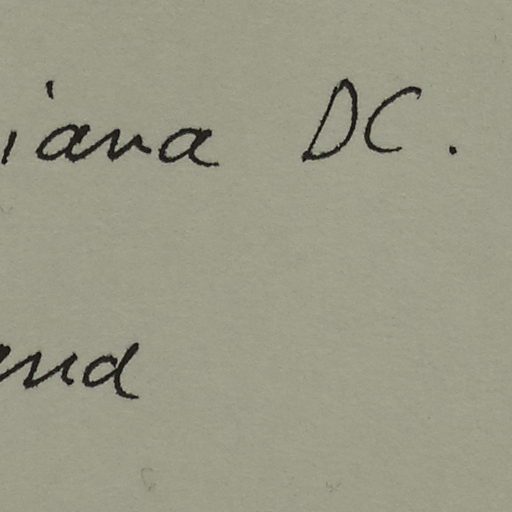 iana DC.
end